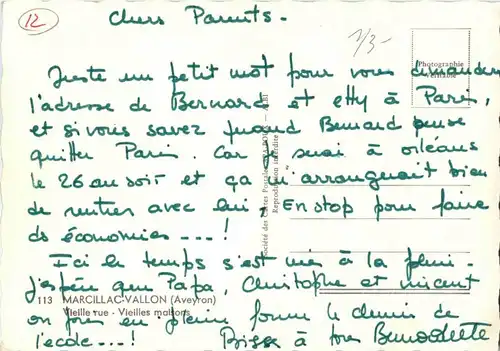 12
Chers Parents -
1/3-
Photographie
véritable
Juste un petit mot pour vous demander
l'adresse de Bernard et Etty à Paris,
et si vous savez quand Bernard pense
quitter Paris. Car je serai à orléans
le 26 au soir et ça m'arrangerait bien
de rentrer avec lui, En stop pour faire
des économies---!
Ici le temps s'est mis à la pluie-
j'espère que Papa, Christophe et vincent
113 MARCILLAC-VALLON (Aveyron)
Vieille rue - Vieilles maisons
ont pris en pleine forme le chemin de
l'école---!
Bises à tous Bernadette
Reproduction interdite